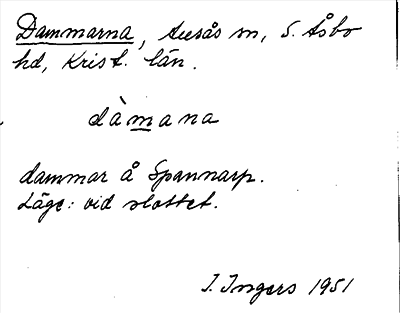 Dammarna, Ausås sn, S. Åsbo
hd, Krist. län.
dàmana
dammar å Spannarp.
Läge: vid slottet.
I. Ingers 1951